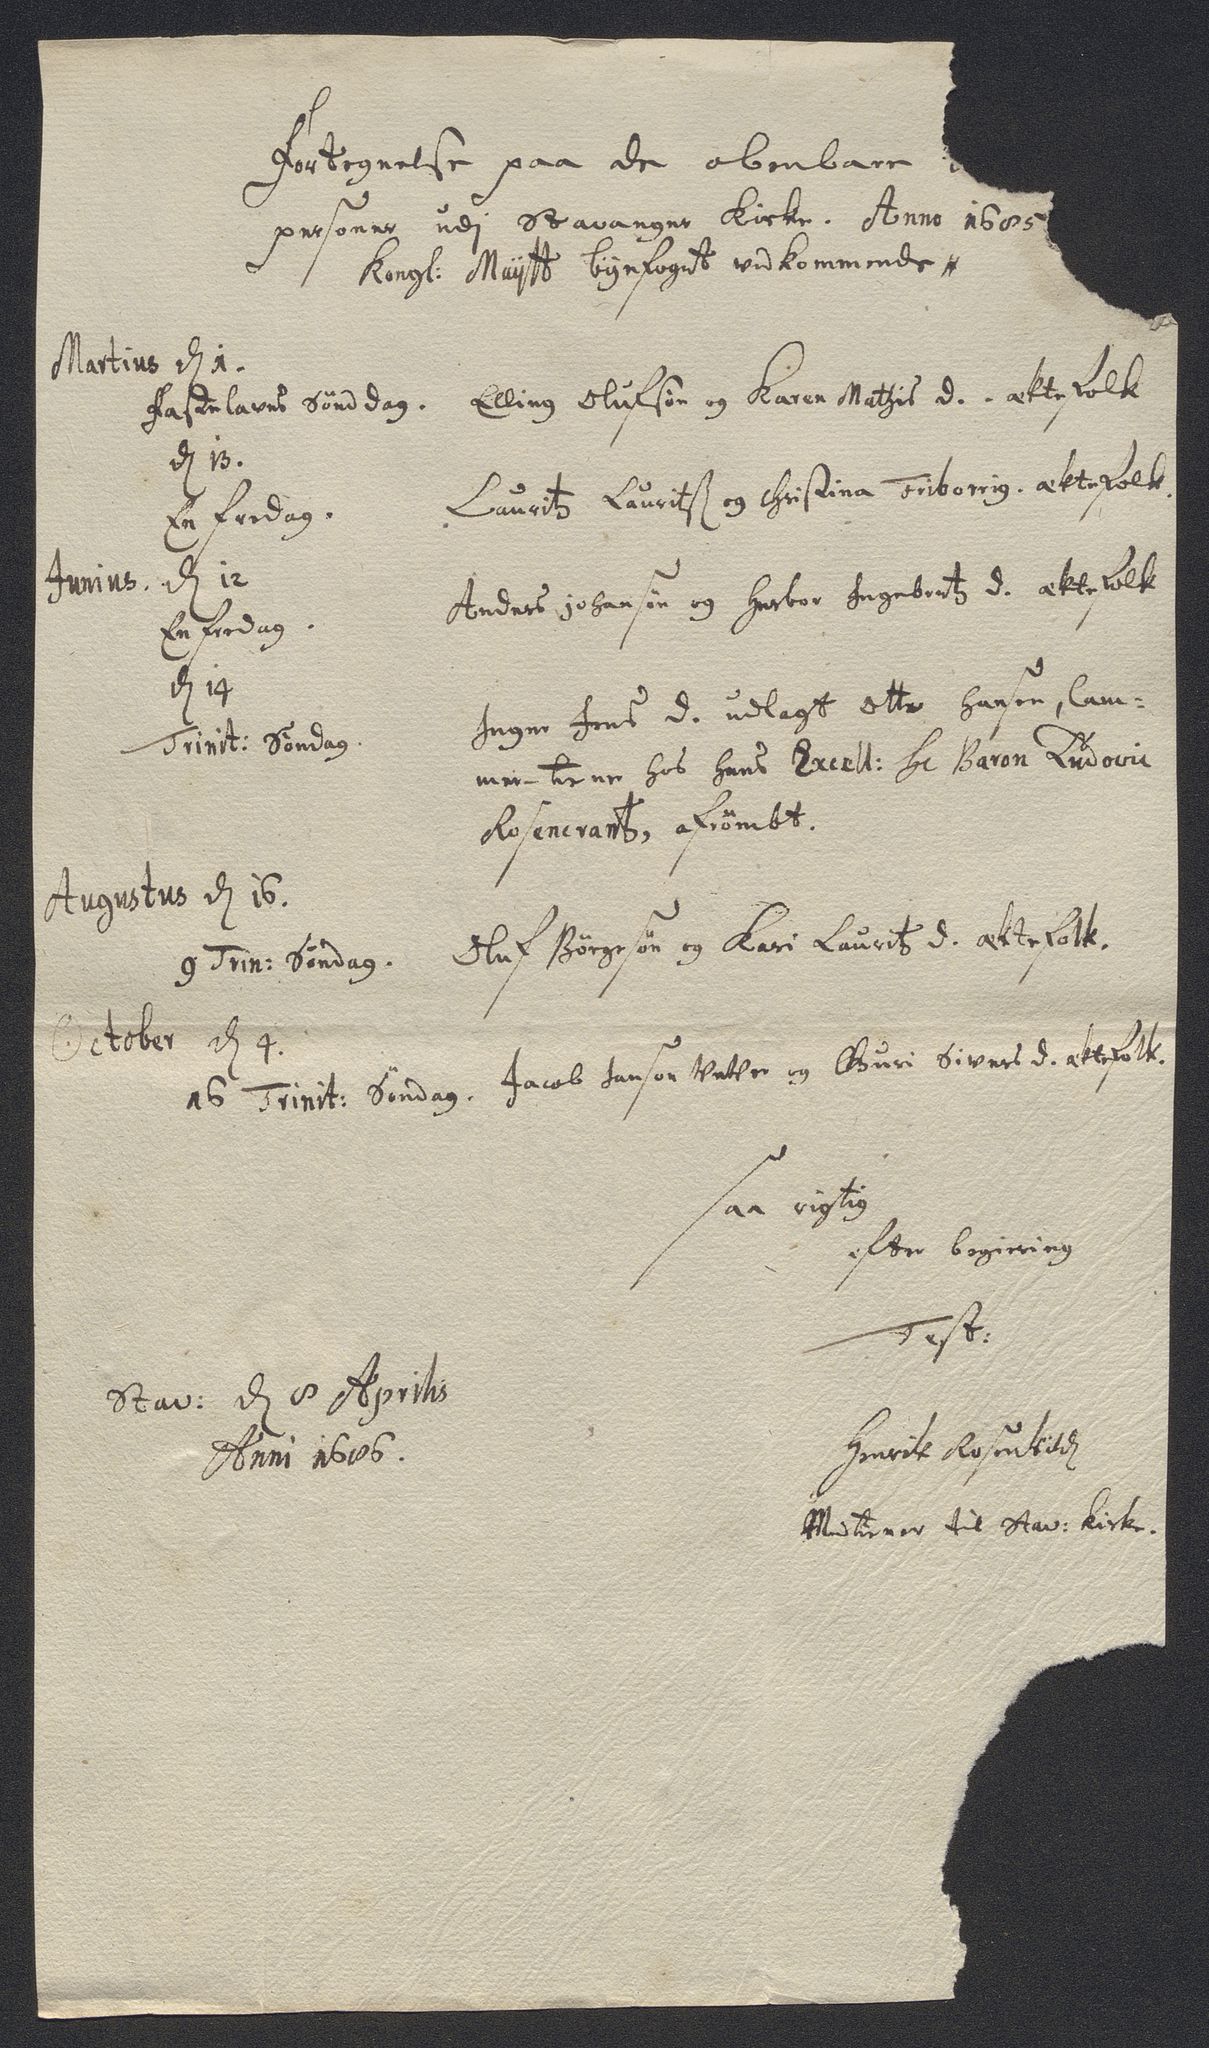 Fortegnelse paa de obenbare
personer udj Stavanger Kirke. Anno 1685
Kongl: Mayst byefogst vedkommende
Martius dn 1.
Fastelavns Sønddag. Elling Olufsøn og Karen Mathis d. ektefolk
dn 13.
En fredag. Lauritz Lauritsß og Christina Triborrig. ektefolk.
Junius. dn 12
En fredag. Anders johansøn og Herbor Ingebertz d. ektefolk
dn 14
Trinit: Søndag. Inger Jens d. udlagt Otto Hansen, Cam-
mer-tiener hos hans Excell: Hr Baron Ludovic
Rosencrantz, afrømbt.
Augustus dn 16.
9 Trin: Søndag. Oluf Börgesøn og Kari Lauritz d. ektefolk.
October dn 4.
16 Trinit: Søndag. Jacob Jansøn Vever og Guri Sivers d. ektefolk.
saa rigtig
efter begiering
Test:
Stav: dn 8 Aprilis
Anni 1686.
Henrik Rosenkild
Medtiener til Stav: Kirke.